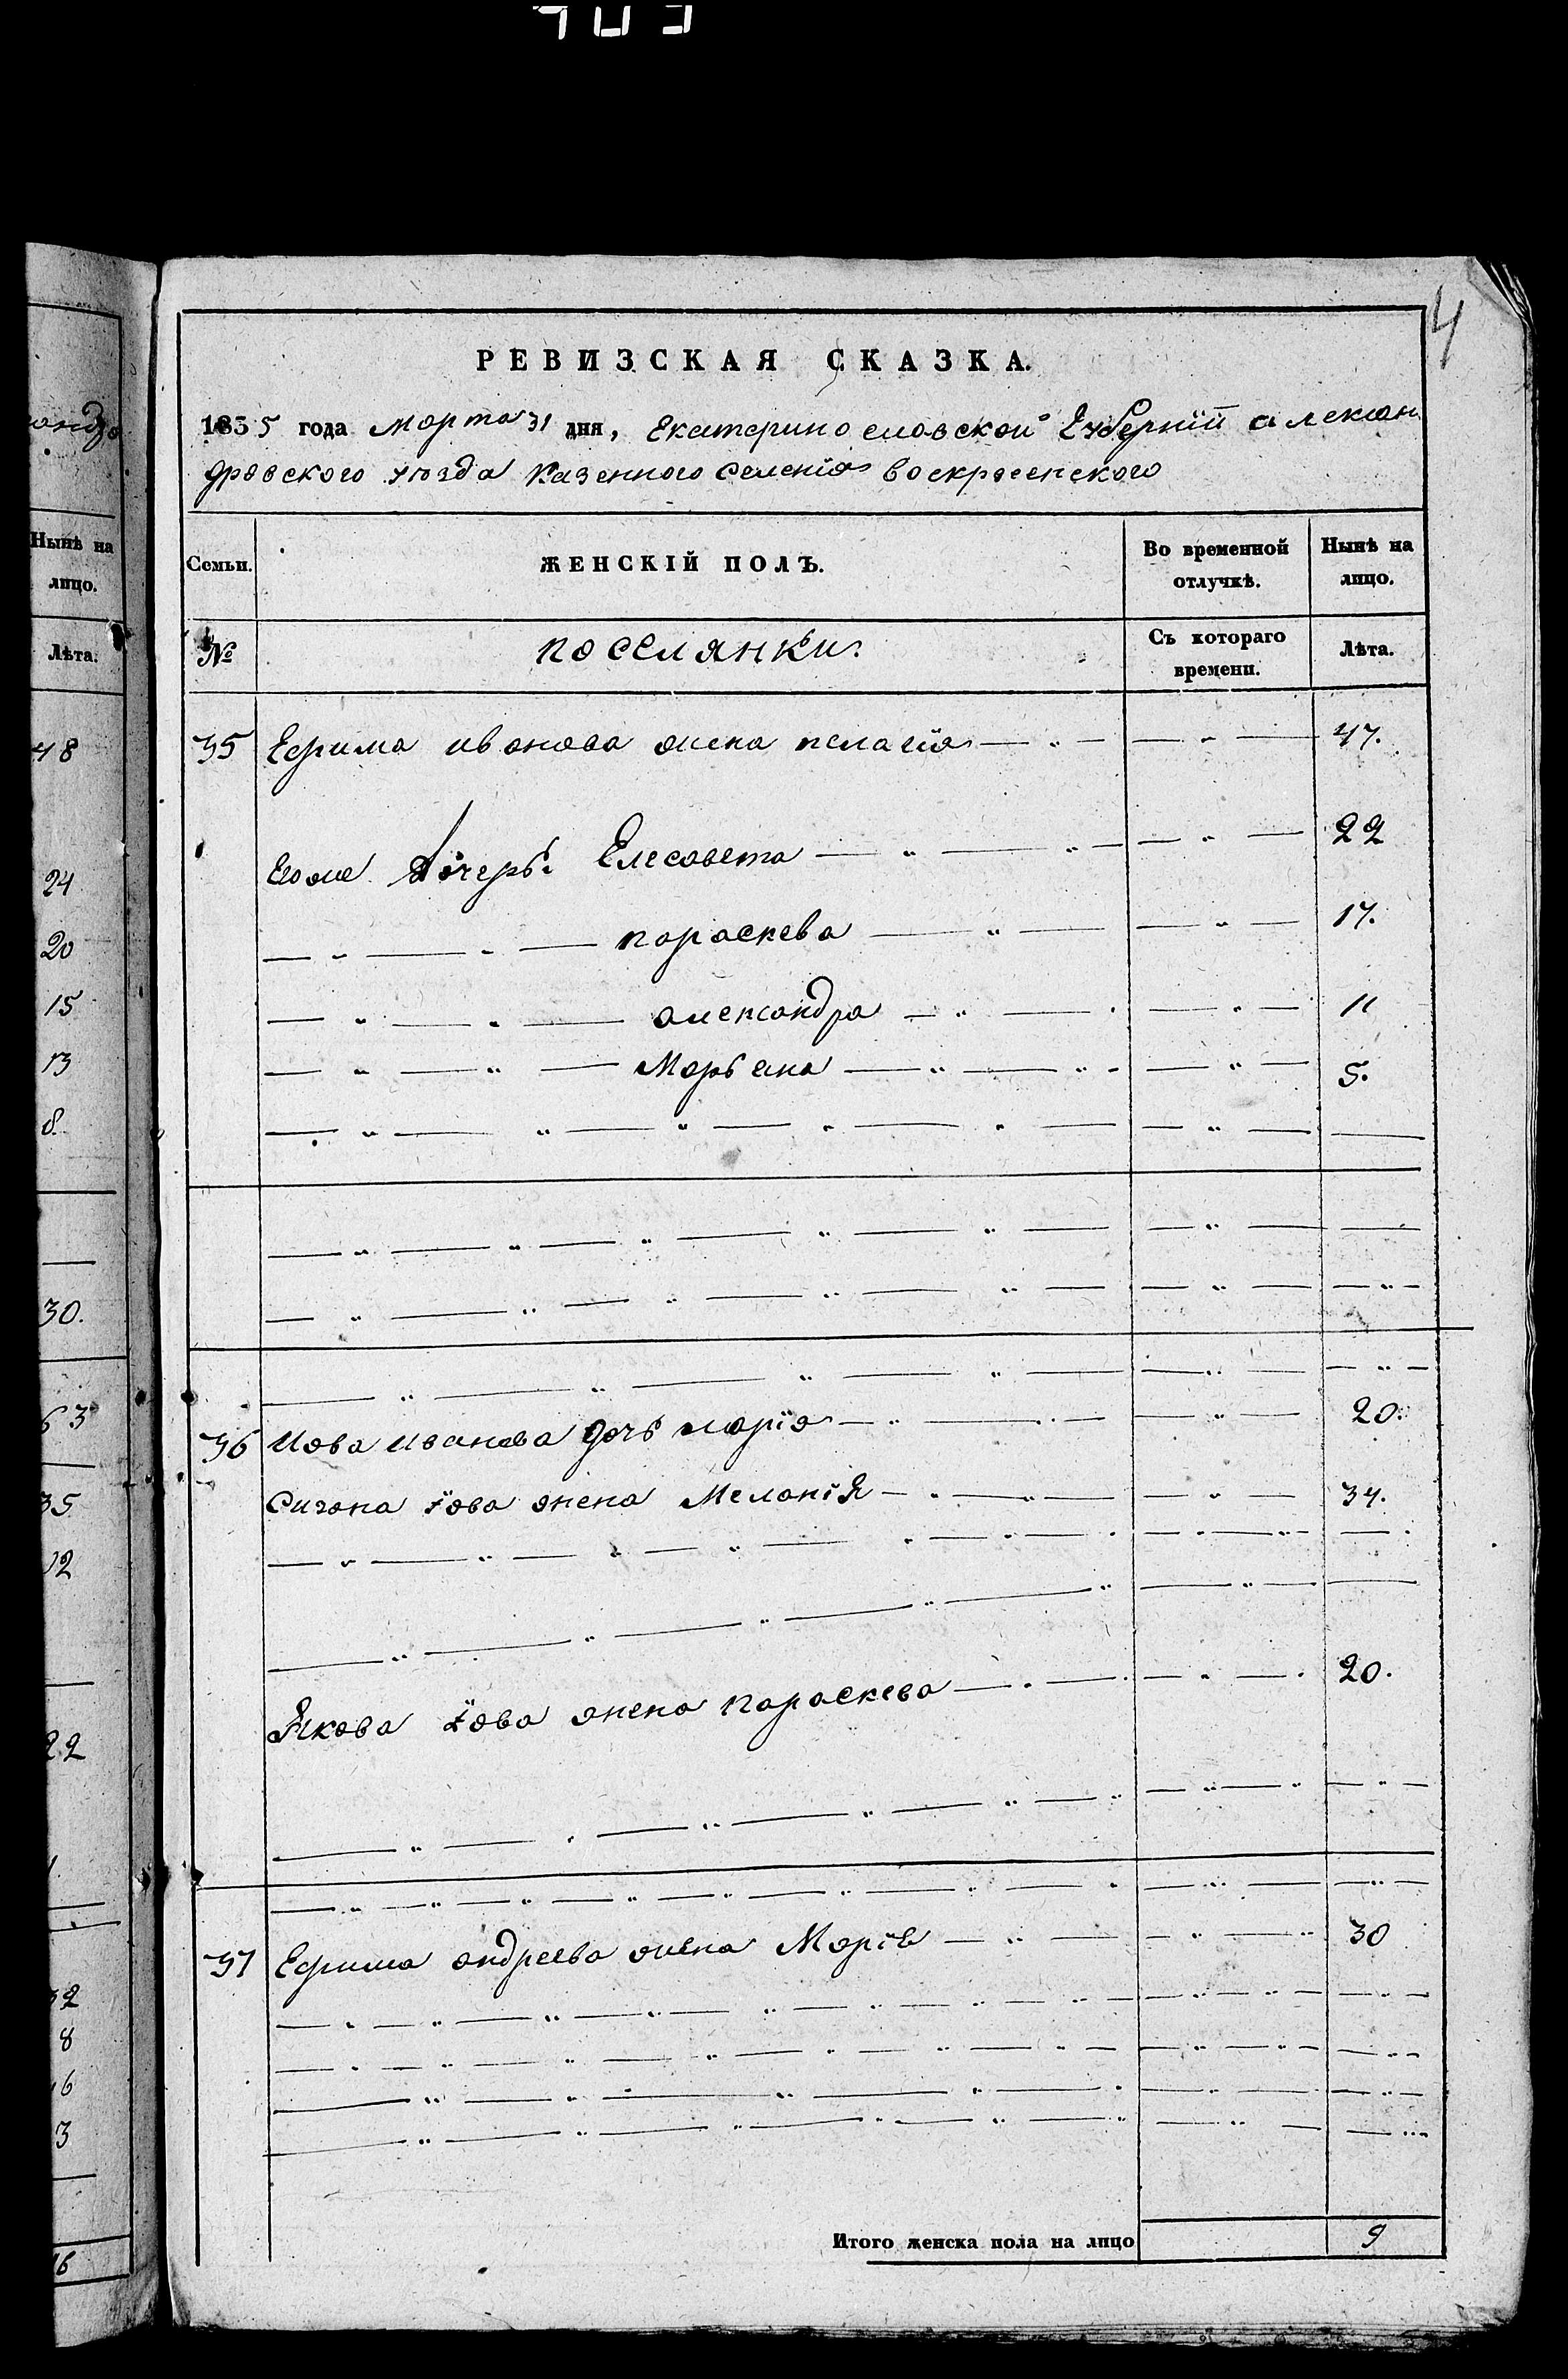 4
РЕВИЗСКАЯ СКАЗКА.
1835 года Марта 31 дня, Екатерино словской Губерніи алексан
дровского уюзда казенного селенія воскресенского
Семьи.
ЖЕНСКІЙ ПОЛЪ.
Во временной отлучкѣ.
Нынѣ на лицо.
№
поселянки.
Съ котораго времени.
Лѣта.
35 Ефима иванова жена пелагія 47.
Егоже дочерь: Елесавета 22
параскева 17.
александра 11
Марьяна 5.
36 Иова иванова дочь марія 20.
іова жена Меланія 34.
Якова іова жена параскева 20.
37 Ефима андреева жена Марія 30
Итого женска пола на лицо 9
Нынѣ на
лицо.
Лѣта.
48
24
20
15
13
8.
30.
63
35
22
8
3